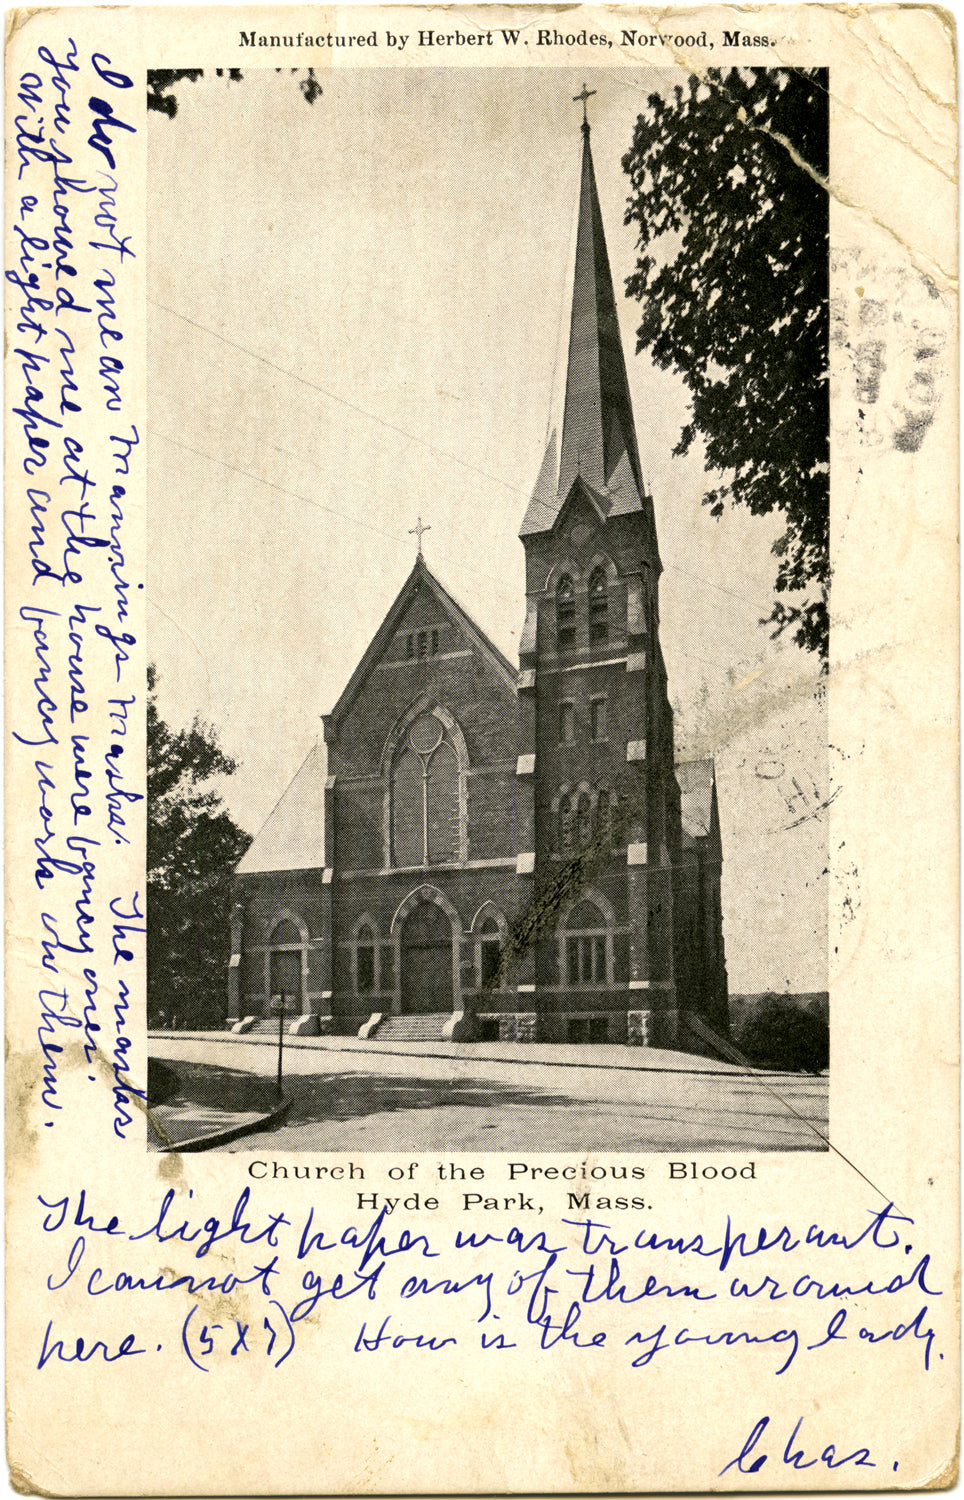 Manufactured by Herbert W. Rhodes, Norwood, Mass.
I do not mean Manning's Masks. The masks
you showed me, at the house were fancy ones.
with a light paper and fancy work on them.
Church of the Precious Blood
Hyde Park, Mass.
The light paper was transperant.
I cannot get any of them around
here. (5 X 7) How is the young lady.
Chas.